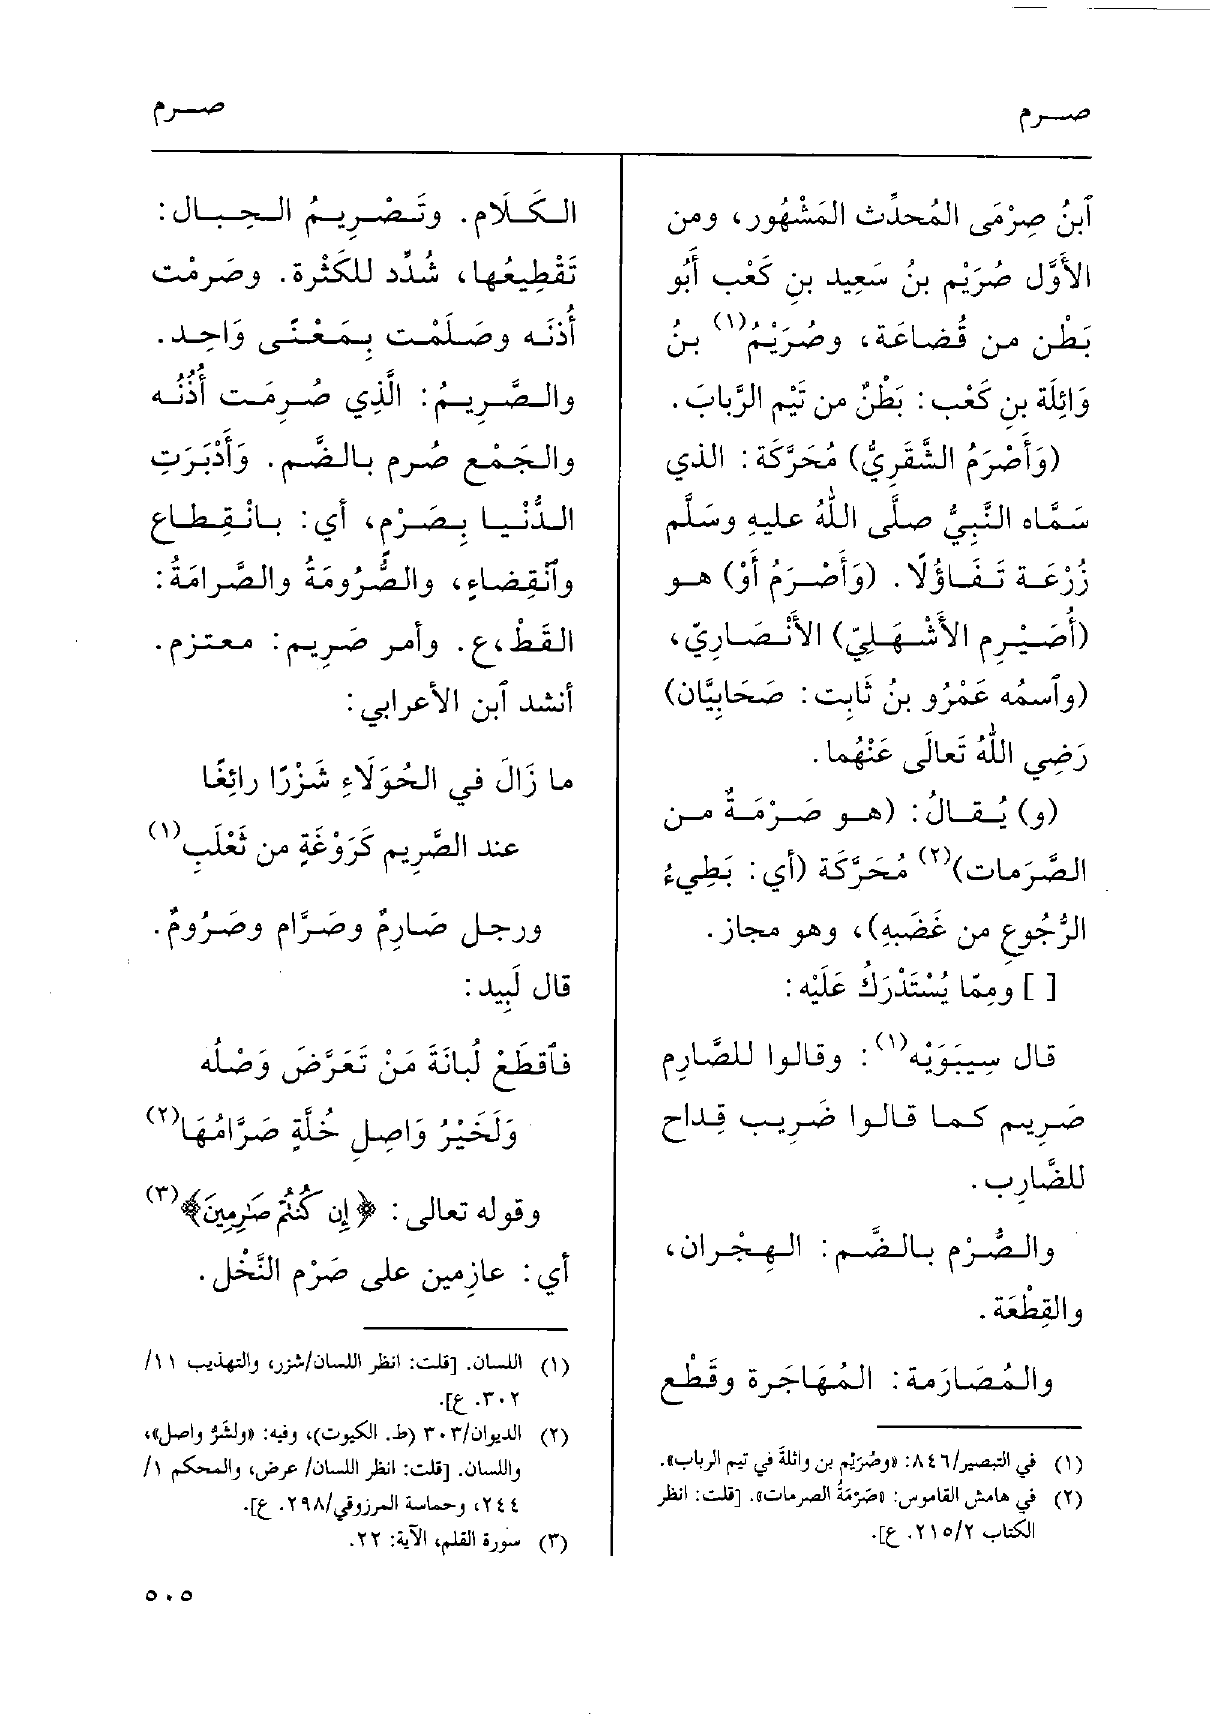 صرم
صرم
ٱبنُ صِرْمَى المُحدِّث المَشْهُور، ومن
الأَوَّل صُرَيْم بنُ سَعِيد بنِ كَعْب أَبُو
بَطْن من قُضاعَة، وصُرَيْمُ(١) بنُ
وَائِلَة بنِ كَعْب: بَطْنٌ من تَيْم الرِّبابَ.
(وَأَصْرَمُ الشَّقَرِيُّ) مُحَرَّكَة: الذي
سَمَّاه النَّبِيُّ صلَّى اللهُ عليهِ وسَلَّم
زُرْعَة تَفَاؤُلًا. (وَأَصْرَمُ أَوْ) هو
(أُصَيْرِم الأَشْهَلِيّ) الأَنْصَارِيّ،
(وٱسمُه عَمْرُو بنُ ثَابِت: صَحَابِيَّان)
رَضِي اللهُ تَعالَى عَنْهُما.
(و) يُقالُ: (هو صَرْمَةٌ من
الصَّرَمات)(٢) مُحَرَّكَة (أي: بَطِيءُ
الرُّجُوعِ من غَضَبِهِ)، وهو مجاز.
[ ] ومِمّا يُسْتَدْرَكُ عَلَيْه:
قال سِيبَوَيْه(١): وقالوا للصَّارِم
صَرِيم كما قالوا ضَرِيب قِداح
للضَّارِب.
والصُّرْم بالضَّم: الهِجْران،
والقِطْعَة.
والمُصَارَمة: المُهَاجَرة وقَطْع
(١) في التبصير/٨٤٦: «وصُرَيْم بن وائلةَ في تيم الرباب».
(٢) في هامش القاموس: «صَرْمَةُ الصرمات». [قلت: انظر
الكتاب ٢١٥/٢. ع].
الكَلَام. وتَصْرِيمُ الحِبال:
تَقْطِيعُها، شُدِّد للكَثْرة. وصَرمْت
أُذنَه وصَلَمْت بِمَعْنًى وَاحِد.
والصَّرِيمُ: الَّذِي صُرِمَت أُذُنُه
والجَمْع صُرم بالضَّم. وَأَدْبَرَتِ
الدُّنْيا بِصَرْم، أي: بانْقِطاع
وٱنْقِضاءٍ، والصُّرُومَةُ والصَّرامَةُ:
القَطْع. وأمر صَرِيم: معتزم.
أنشد ٱبن الأعرابي:
ما زَالَ في الحُوَلَاءِ شَزْرًا رائِغًا
عند الصَّرِيم كَرَوْغَةٍ من ثَعْلَبِ(١)
ورجل صَارِمٌ وصَرَّام وصَرُومٌ.
قال لَبِيد:
فٱقطَعْ لُبانَةَ مَنْ تَعَرَّضَ وَصْلُه
وَلَخَيْرُ وَاصِلِ خُلَّةٍ صَرَّامُهَا(٢)
وقوله تعالى: ﴿إِن كُنتُم صَٰرِمِينَ﴾(٣)
أي: عازمين على صَرْم النَّخْل.
(١) اللسان. [قلت: انظر اللسان/شزر، والتهذيب ١١/
٣٠٢. ع].
(٢) الديوان/٣٠٣ (ط. الكويت)، وفيه: «ولشَرُّ واصل»،
واللسان. [قلت: انظر اللسان/ عرض، والمحكم ١/
٢٤٤، وحماسة المرزوقي/٢٩٨. ع].
(٣) سورة القلم، الآية: ٢٢.
٥٠٥